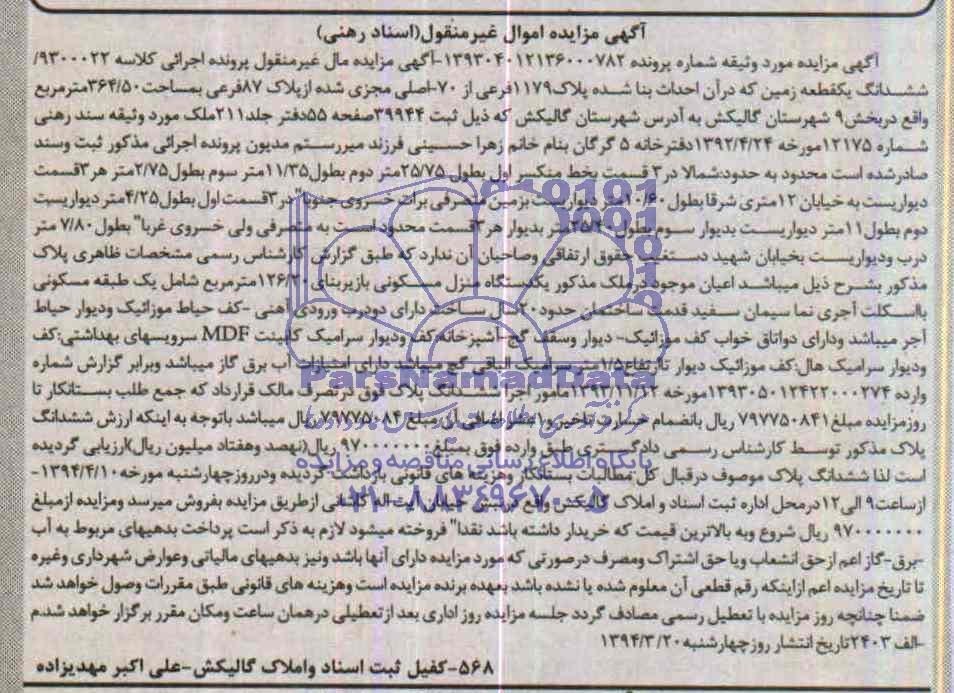 آگهی مزایده اموال غیرمنقول(اسناد رهنی)
آگهی مزایده مورد وثیقه شماره پرونده ۱۳۹۳۰۴۰۱۲۱۳۶۰۰۰۷۸۲-آگهی مزایده مال غیرمنقول پرونده اجرائی کلاسه ۹۳۰۰۰۲۲/
ششدانگ یکقطعه زمین که درآن احداث بنا شده پلاک۱۱۷۹فرعی از ۷۰-اصلی مجزی شده ازپلاک ۸۷فرعی بمساحت۳۶۴/۵۰مترمربع
واقع دربخش۹ شهرستان گالیکش به آدرس شهرستان گالیکش که ذیل ثبت ۳۹۹۴۴صفحه ۵۵دفتر جلد۲۱۱ملک مورد وثیقه سند رهنی
شماره ۱۲۱۷۵مورخه ۱۳۹۲/۴/۲۴دفترخانه ۵ گرگان بنام خانم زهرا حسینی فرزند میررستم مدیون پرونده اجرائی مذکور ثبت وسند
صادرشده است محدود به حدود:شمالا در۳ قسمت بخط منکسر اول بطول ۲۵/۷۵متر دوم بطول۱۱/۳۵متر سوم بطول۲/۷۵متر هر۳قسمت
دیواریست به خیابان ۱۲متری شرقا بطول ۱۰/۶۰متر دیواریست بزمین متصرفی برات خسروی جنوبا" در۳قسمت اول بطول۴/۲۵متر دیواریست
دوم بطول۱۱متر دیواریست بدیوار سوم بطول۲۵/۲۰متر بدیوار هر۳قسمت محدود است به متصرفی ولی خسروی غربا" بطول ۷/۸۰ متر
درب ودیواریست بخیابان شهید دستغیب حقوق ارتفاقی وصاحبان آن ندارد که طبق گزارش کارشناس رسمی مشخصات ظاهری پلاک
مذکور بشرح ذیل میباشد اعیان موجود درملک مذکور یکدستگاه منزل مسکونی بازیربنای۱۲۶/۲۰مترمربع شامل یک طبقه مسکونی
بااسکلت آجری نما سیمان سفید قدمت ساختمان حدود۲۰سال ساخت دارای دودرب ورودی آهنی -کف حیاط موزائیک ودیوار حیاط
آجر میباشد ودارای دواتاق خواب کف موزائیک- دیوار وسقف گچ-آشپزخانه:کف ودیوار سرامیک کابینت MDF سرویسهای بهداشتی:کف
ودیوار سرامیک هال:کف موزائیک دیوار تاارتفاع۱/۵متر سرامیک الباقی گچ میباشد دارای امتیازات آب برق گاز میباشد وبرابر گزارش شماره
وارده ۱۳۹۳۰۵۰۱۲۴۲۲۰۰۰۲۷۴مورخه مامور اجرا ششدانگ پلاک فوق درتصرف مالک قرارداد که جمع طلب بستانکار تا
روزمزایده مبلغ۷۹۷۷۵۰۸۴۱ ریال بانضمام خسارت تاخیر و مبلغ ریال میباشد باتوجه به اینکه ارزش ششدانگ
پلاک مذکور توسط کارشناس رسمی دادگستری طبق وارده فوق بمبلغ۹۷۰۰۰۰۰۰۰ ریال(نهصد وهفتاد میلیون ریال)ارزیابی گردیده
است لذا ششدانگ پلاک موصوف درقبال کل مطالبات بستانکار وهزینه های قانونی بازداشت گردیده ودرروزچهارشنبه مورخه ۱۳۹۴/۴/۱۰-
ازساعت۹ الی۱۲درمحل اداره ثبت اسناد و املاک گالیکش واقع در خیابان کاشانی ازطریق مزایده بفروش میرسد ومزایده ازمبلغ
۹۷۰۰۰۰۰۰۰ ریال شروع وبه بالاترین قیمت که خریدار داشته باشد نقدا" فروخته میشود لازم به ذکر است پرداخت بدهیهای مربوط به آب
-برق-گاز اعم ازحق انشعاب ویا حق اشتراک ومصرف درصورتی که مورد مزایده دارای آنها باشد ونیز بدهیهای مالیاتی وعوارض شهرداری وغیره
تا تاریخ مزایده اعم ازاینکه رقم قطعی آن معلوم شده یا نشده باشد بعهده برنده مزایده است وهزینه های قانونی طبق مقررات وصول خواهد شد
ضمنا چنانچه روز مزایده با تعطیل رسمی مصادف گردد جلسه مزایده روز اداری بعد ازتعطیلی درهمان ساعت ومکان مقرر برگزار خواهد شد.م
-الف ۲۴۰۳تاریخ انتشار روزچهارشنبه۱۳۹۴/۳/۲۰
۵۶۸-کفیل ثبت اسناد واملاک گالیکش-علی اکبر مهدیزاده
ParsNamadData
پایگاه اطلاع رسانی مناقصه و مزایده
۰۲۱-۸۸۳۴۹۶۷۰-۵